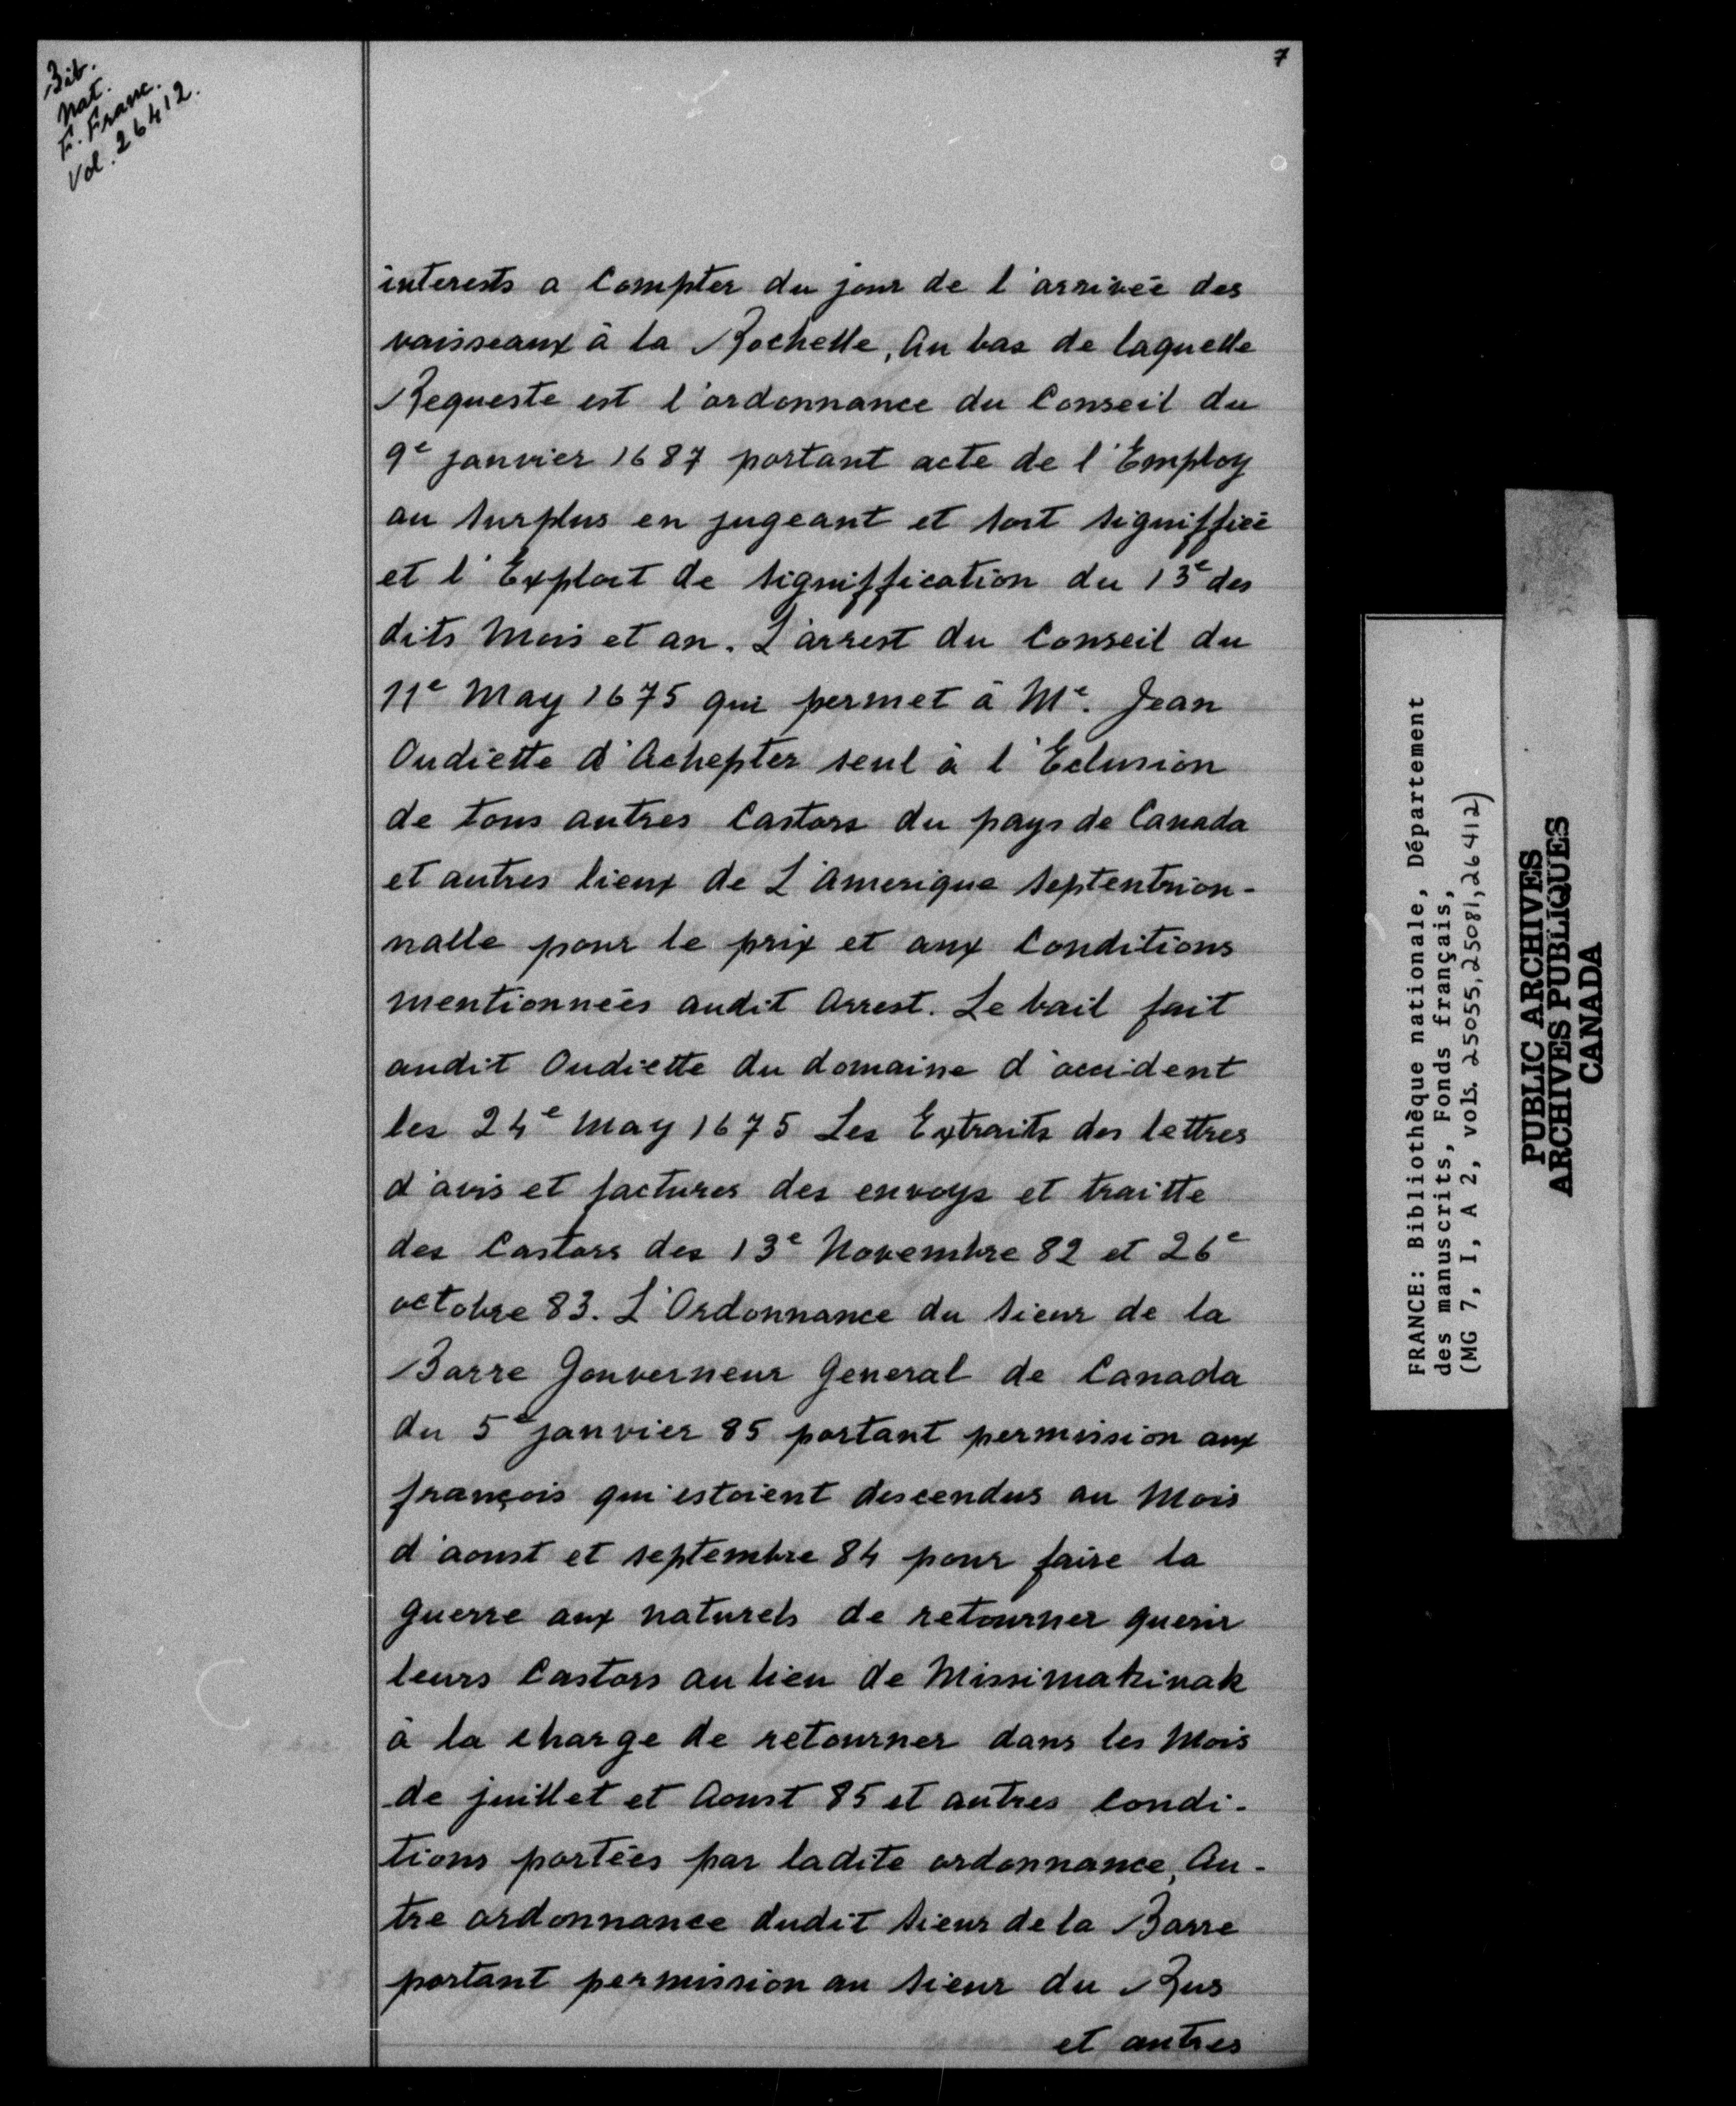 Bib.
Nat.
F. Franc.
Vol. 26412.
7
interests a Compter du jour de l'arrivée des
vaisseaux à la Rochelle, Au bas de laquelle
Requeste est l'ordonnance du Conseil du
9e janvier 1687 portant acte de l'Employ
au surplus en jugeant et soit signiffiée
et l'Exploit de signiffication du 13e des
dits Mois et an. L'arrest du Conseil du
11e May 1675 qui permet à Me. Jean
Oudiette d'Achepter seul à l'Eclusion
de tous autres Castors du pays de Canada
et autres lieux de L'amerique septentrion-
nalle pour le prix et aux Conditions
mentionnées audit Arrest. Le bail fait
audit Oudiette du domaine d'occident
les 24e May 1675 Les Extraits des lettres
d'avis et factures des envoys et traitte
des Castors des 13e Novembre 82 et 26e
octobre 83. L'Ordonnance du sieur de la
Barre Gouverneur General de Canada
du 5e janvier 85 portant permission aux
françois qui estoient descendus au Mois
d'aoust et septembre 84 pour faire la
guerre aux naturels de retourner querir
leurs Castors au lieu de Missimakinak
à la charge de retourner dans les Mois
de juillet et Aoust 85 et autres condi-
tions portées par ladite ordonnance, Au-
tre ordonnance dudit sieur de la Barre
portant permission au sieur du Rus
et autres
FRANCE: Bibliothèque nationale, Département
des manuscrits, Fonds français,
(MG 7, I, A 2, vols. 25055, 25081, 26412)
PUBLIC ARCHIVES
ARCHIVES PUBLIQUES
CANADA